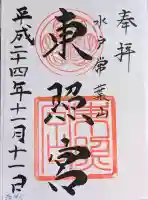 奉拝
水戸常葉山
東照宮
平成二十四年十一月十一日